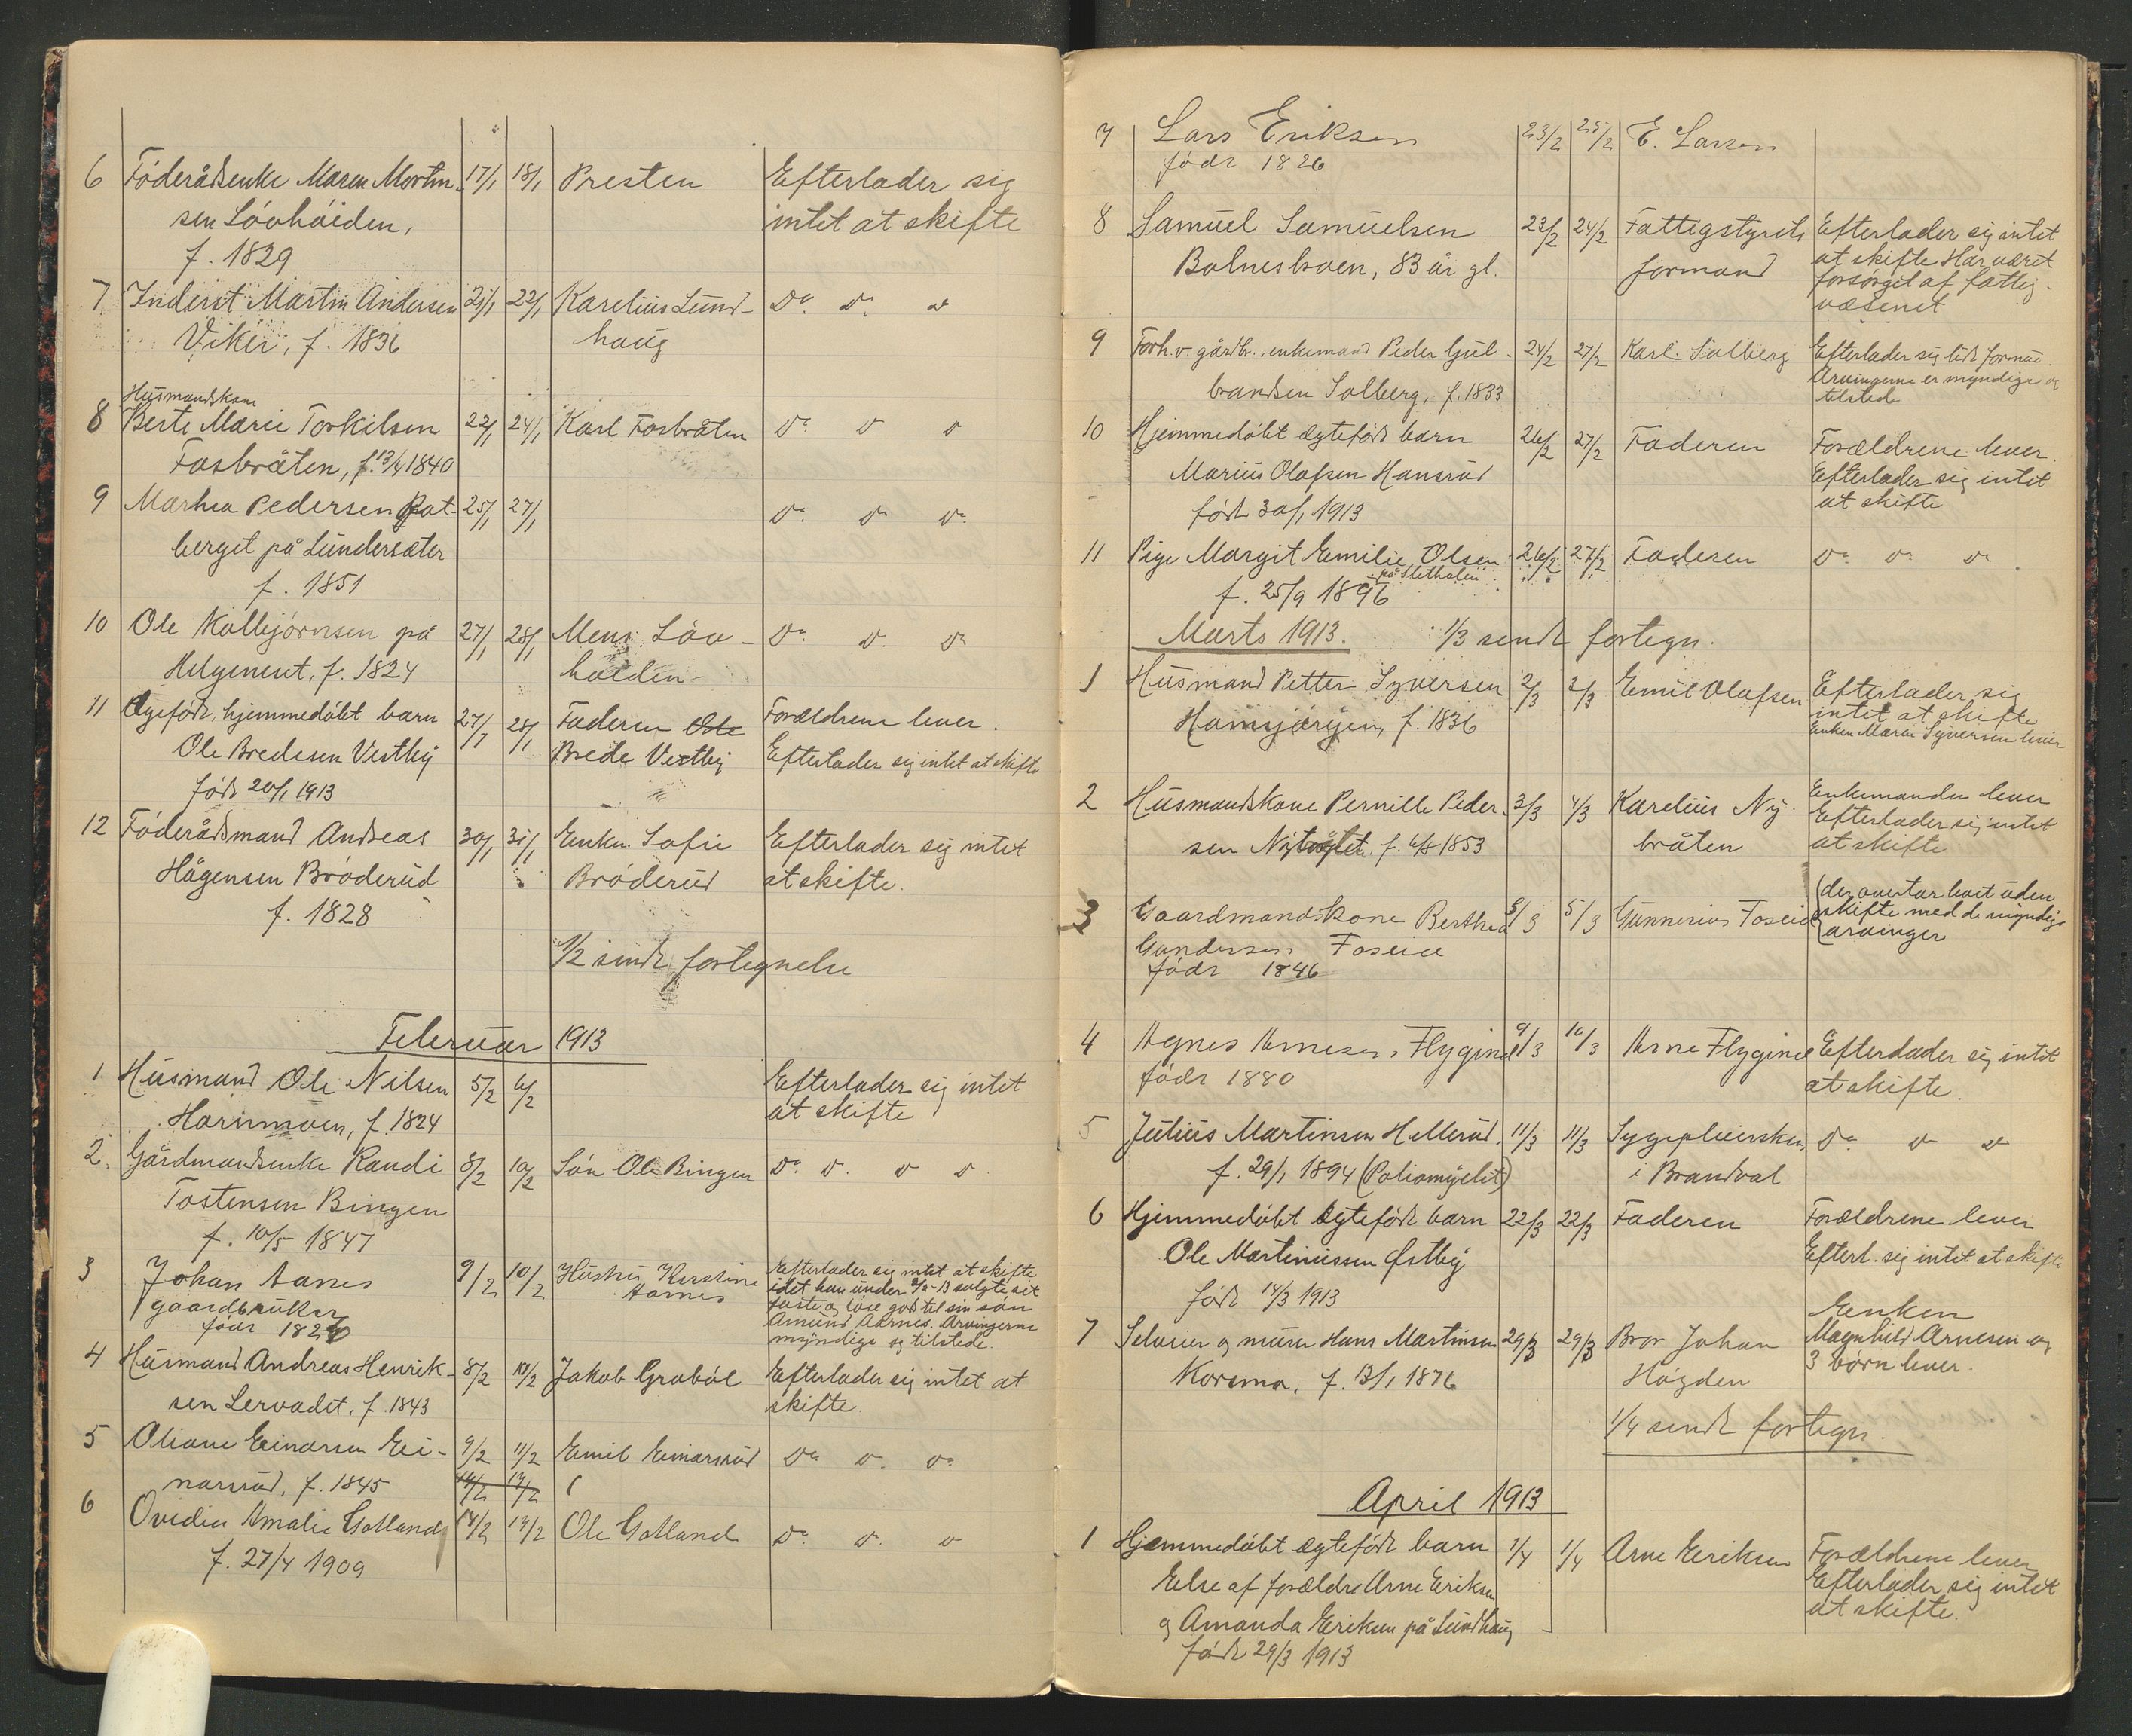 6 Föderådsenke Maren Mortin- 17/1 18/1 Presten Efterlader sig
sen Lövhöiden, intet at skifte
f. 1829
7. Inderst Martin Andersen 21/1 22/1 Karelius Lund- Do. Do. Do
Viker, f. 1836 haug
Husmandskone
8 Berte Marie Torkilsen 22/1 24/1 Karl Fosbråten Do. Do Do
Fosbråten, f. 13/4 1840
9 Marhea Pedersen Rat- 25/1 27/1 Do. Do Do.
berget på Lundersæter
f. 1851
10 Ole Kolbjörnsen på 27/1 28/1 Mens Löv- Do. Do. Do
Helgeneset, f. 1824 hoiden
11 Ægtefödt, hjemmedöbt barn 27/1 28/1 Faderen Forældrene lever.
Ole Bredesen Vestby Brede Vestby Efterlader sig intet at skifte
född 20/1 1913
12 Föderådsmand Andreas 30/1 31/1 Enken Sofie Efterlader sig intet
Hågensen Bröderud Bröderud at skifte.
f. 1828
1/2 sendt fortegnelse
Februar 1913
1 Husmand Ole Nilsen 5/2 6/2 Efterlader sig intet
Harimoen, f. 1824 at skifte
2. Gårdmandsenke Randi 8/2 10/2 Sön Ole Bingen Do. Do. Do Do
Tostensen Bingen
f. 10/5 1847
3 Johan Aanes 9/2 10/2 Hustru Kirstine Efterlader sig intet at skifte
gaardbruker Aarnes idet han under 2/2-13 solgte sit
född faste og löse gods til sin sön
Amund Aarnes. Arvingerne
myndige og tilstede.
4 Husmand Andreas Henrik- 8/2 10/2 Jakob Graböl Efterlader sig intet at
sen Lervadet, f. 1843 skifte.
5 Oliane Einarsen Ei- 9/2 11/2 Emil Einarsrud Do Do. Do
narsrud, f. 1845
6 Ovidia Amalie Gotland 14/2 19/2 Ole Gotland Do. Do. Do
f. 27/4 1909
7 Lars Eriksen 23/2 25/2 E. Larsen
född 1826
8 Samuel Samuelsen 23/2 24/2 Fattigstyrets Efterlader sig intet
Bolneshoen, 83 år gl. formand at skifte Har været
forsörget af fattig-
væsenet
9 Forh.v. gårdbr., enkemand Peder Gul- 24/2 27/2 Karl Solberg Efterlader sig lidt formue
brandsen Solberg, f. 1833 Arvingerne er myndige og
tilsted
10 Hjemmedöbt ægtefödt barn 26/2 27/2 Faderen Forældrene lever.
Marius Olafsen Hansrud Efterlader sig intet
född 30/1 1913 at skifte
11 Pige Margit Emilie Olsen 26/2 27/2 Faderen Do Do Do
på Slethalen
f. 25/9 1896
Marts 1913. 1/3 sendt fortegn.
1 Husmand Petter Syversen 2/3 2/3 Emil Olafsen Efterlader sig
Hamsjargen, f. 1836 intet at skifte
Enken Maren Syversen lever
2 Husmandskone Pernille Peder- 3/3 4/3 Karelius Ny- Enkemanden lever
sen f. 6/8 1853 bråten Efterlader sig intet
at skifte
3 Gaardmandskone Berthea 5/3 5/3 Gunnerius Foseid der overtar boet uden
Gundersen Foseie skifte med de myndige
född 1846 arvinger
4 Agnes Arnesen Flygind 9/3 10/3 Arne Flygind Efterlader sig intet
född 1880 at skifte.
5 Julius Martinsen Hellerud, 11/3 11/3 Sygepleiersken Do Do Do
f. 29/1 1894 (Poliomyelit) i Brandval
6 Hjemmedöbt ægtefödt barn 22/3 22/3 Faderen Forældrene lever
Ole Martiniussen Østby Efterl. sig intet at skifte
född 14/3 1913
7 Seleier og murer Hans Martinsen 29/3 29/3 Bror Johan Enken
Magnhild Arnesen og
Korsmo, f. 13/1 1876 Högden 3 börn lever.
1/4 sendt fortegn.
April 1913
1 Hjemmedöbt ægtefödt barn 1/4 1/4 Arne Eriksen Forældrene lever
Else af forældre Arne Eriksen Efterlader sig intet
og Amanda Eriksen på Lundhaug at skifte.
född 29/3 1913